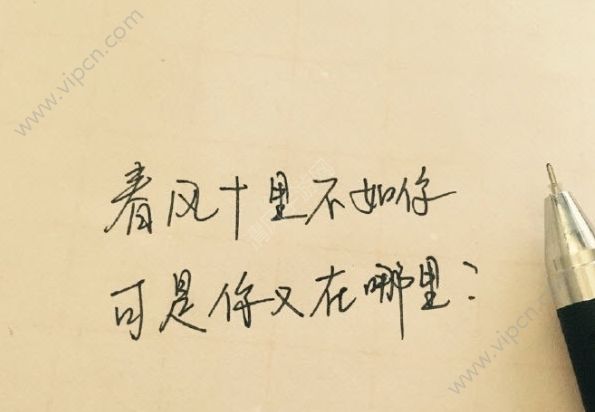 www.vipcn.com
春风十里不如你
可是你又在哪里?
www.vipcn.com